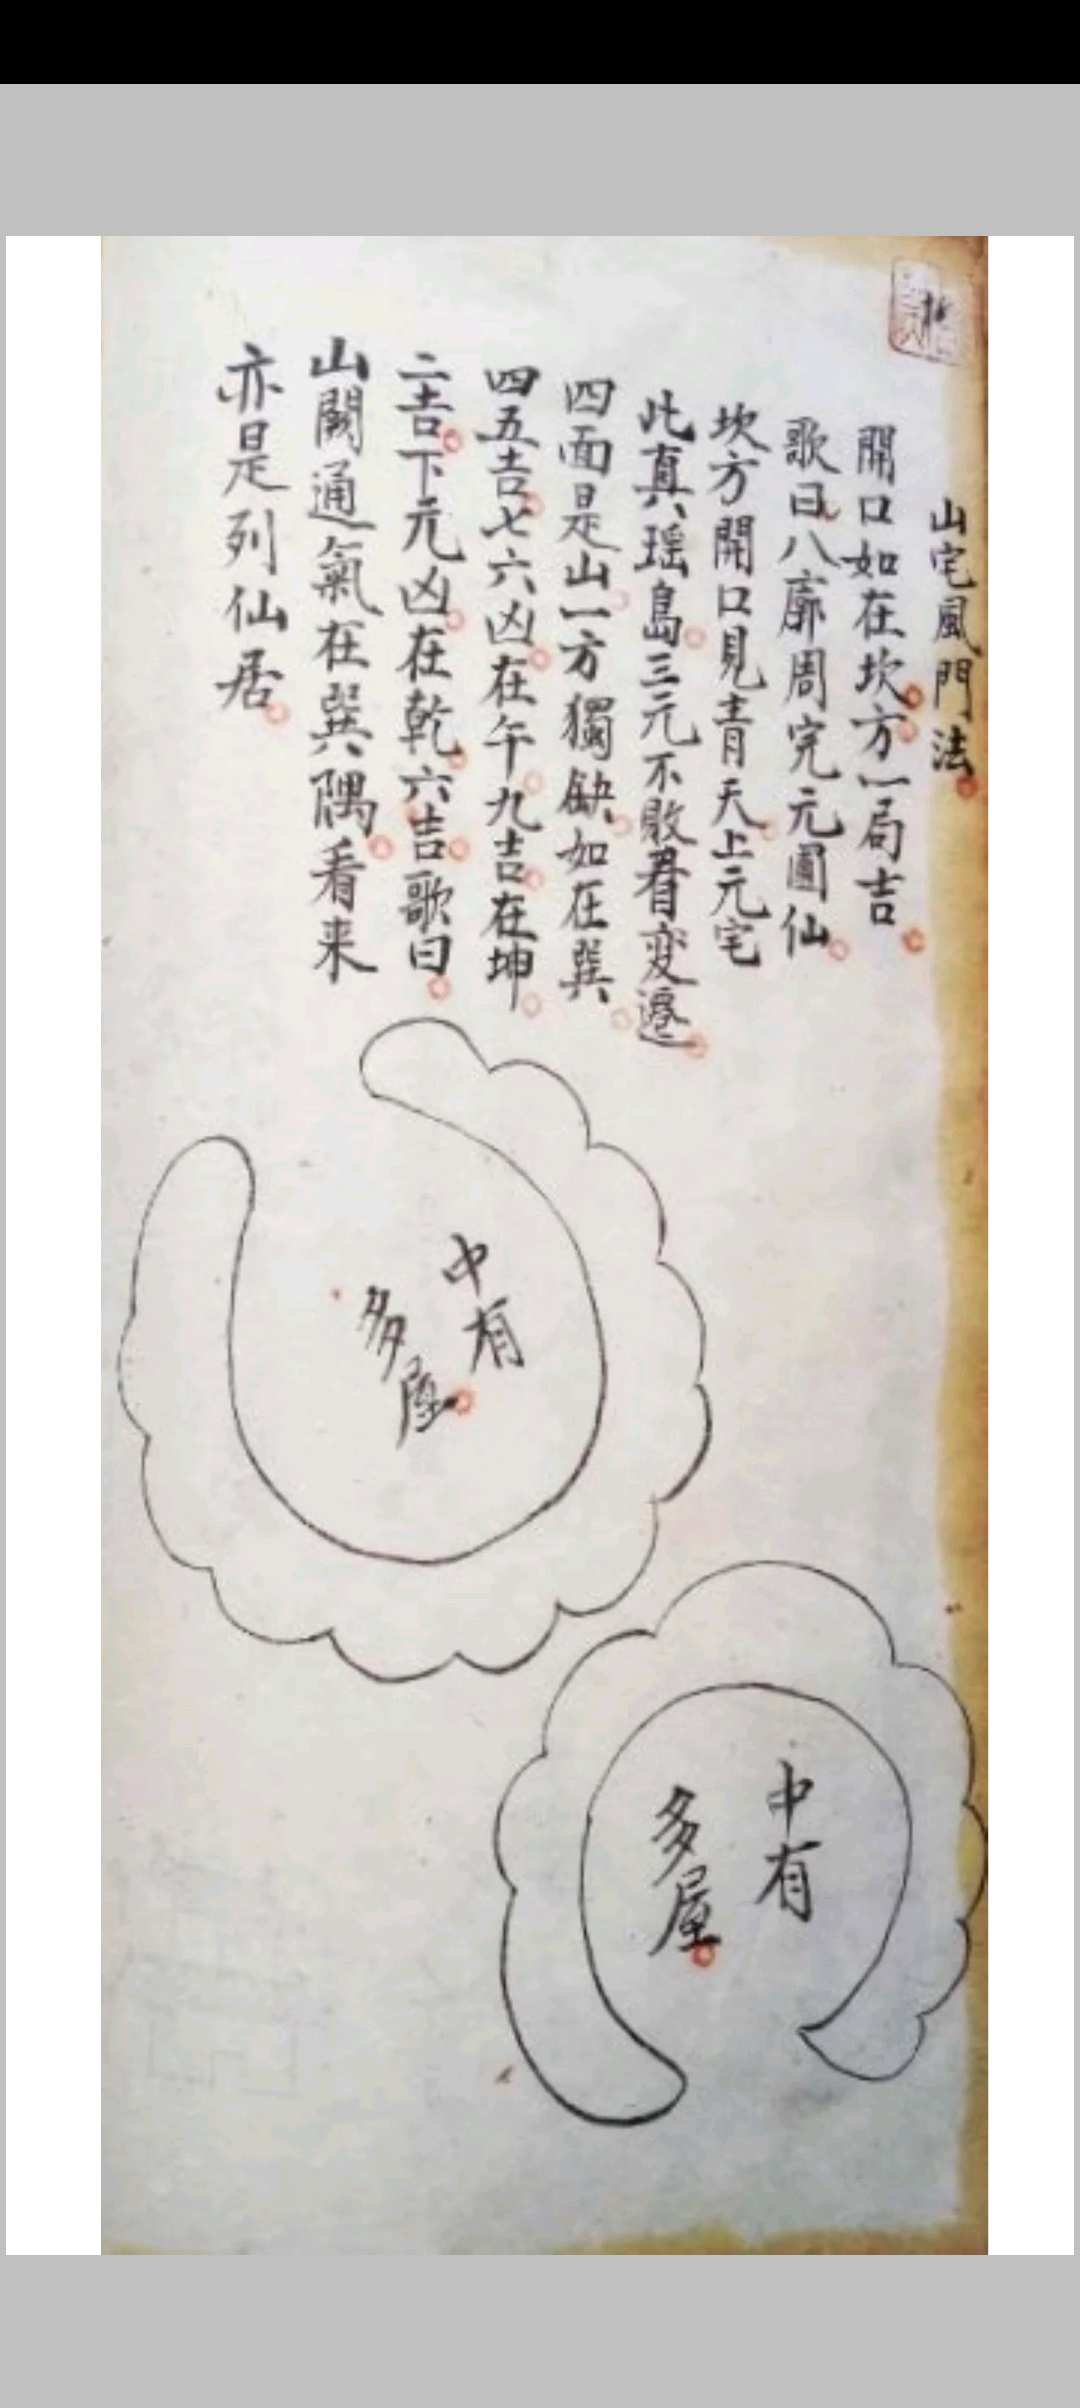 山宅風門法
開口如在坎方一局吉
歌曰八廓周完元圃仙
坎方開口見青天上元宅
此真瑶島三元不敗看变遷
四面是山一方獨缺如在巽
四五吉七六凶在午九吉在坤
二吉下元凶在乾六吉歌曰
山闕通氣在巽隅看来
亦是列仙居
中有
多屋
中有
多屋